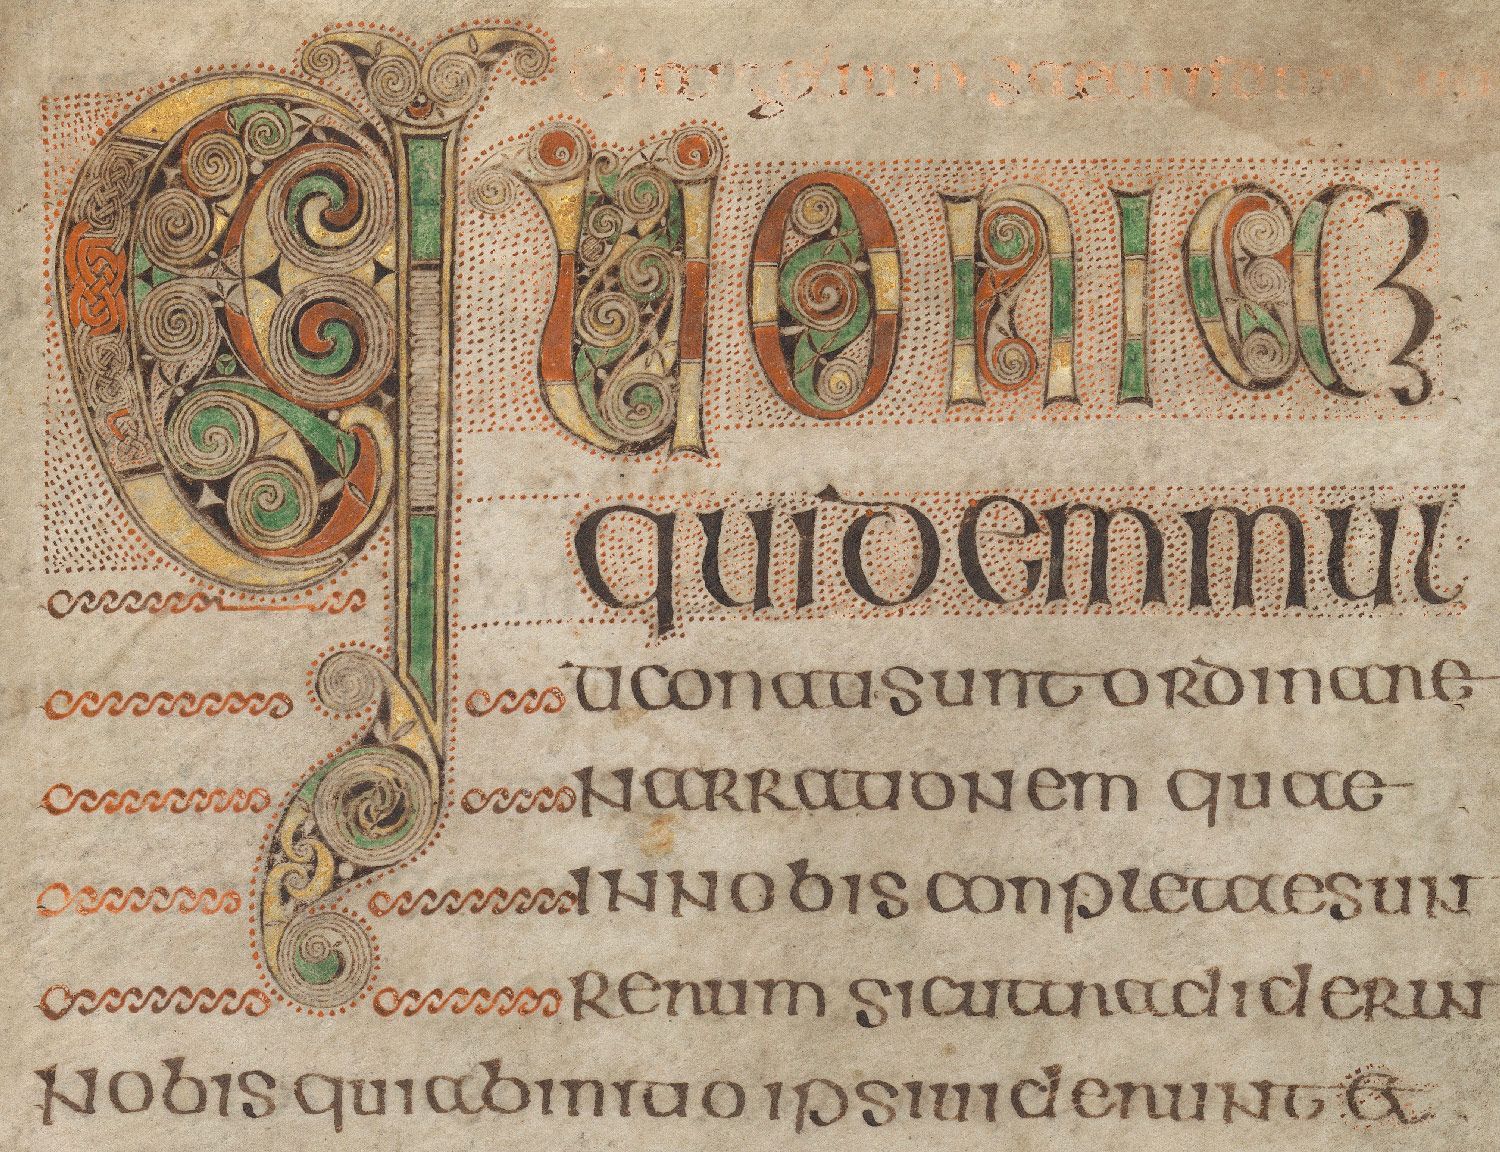 quoniam
quidem mul
ti conati sunt ordinare
narrationem quae
in nobis conpletae sunt
rerum sicut tradiderunt
nobis qui ab initio ipsi uiderunt &